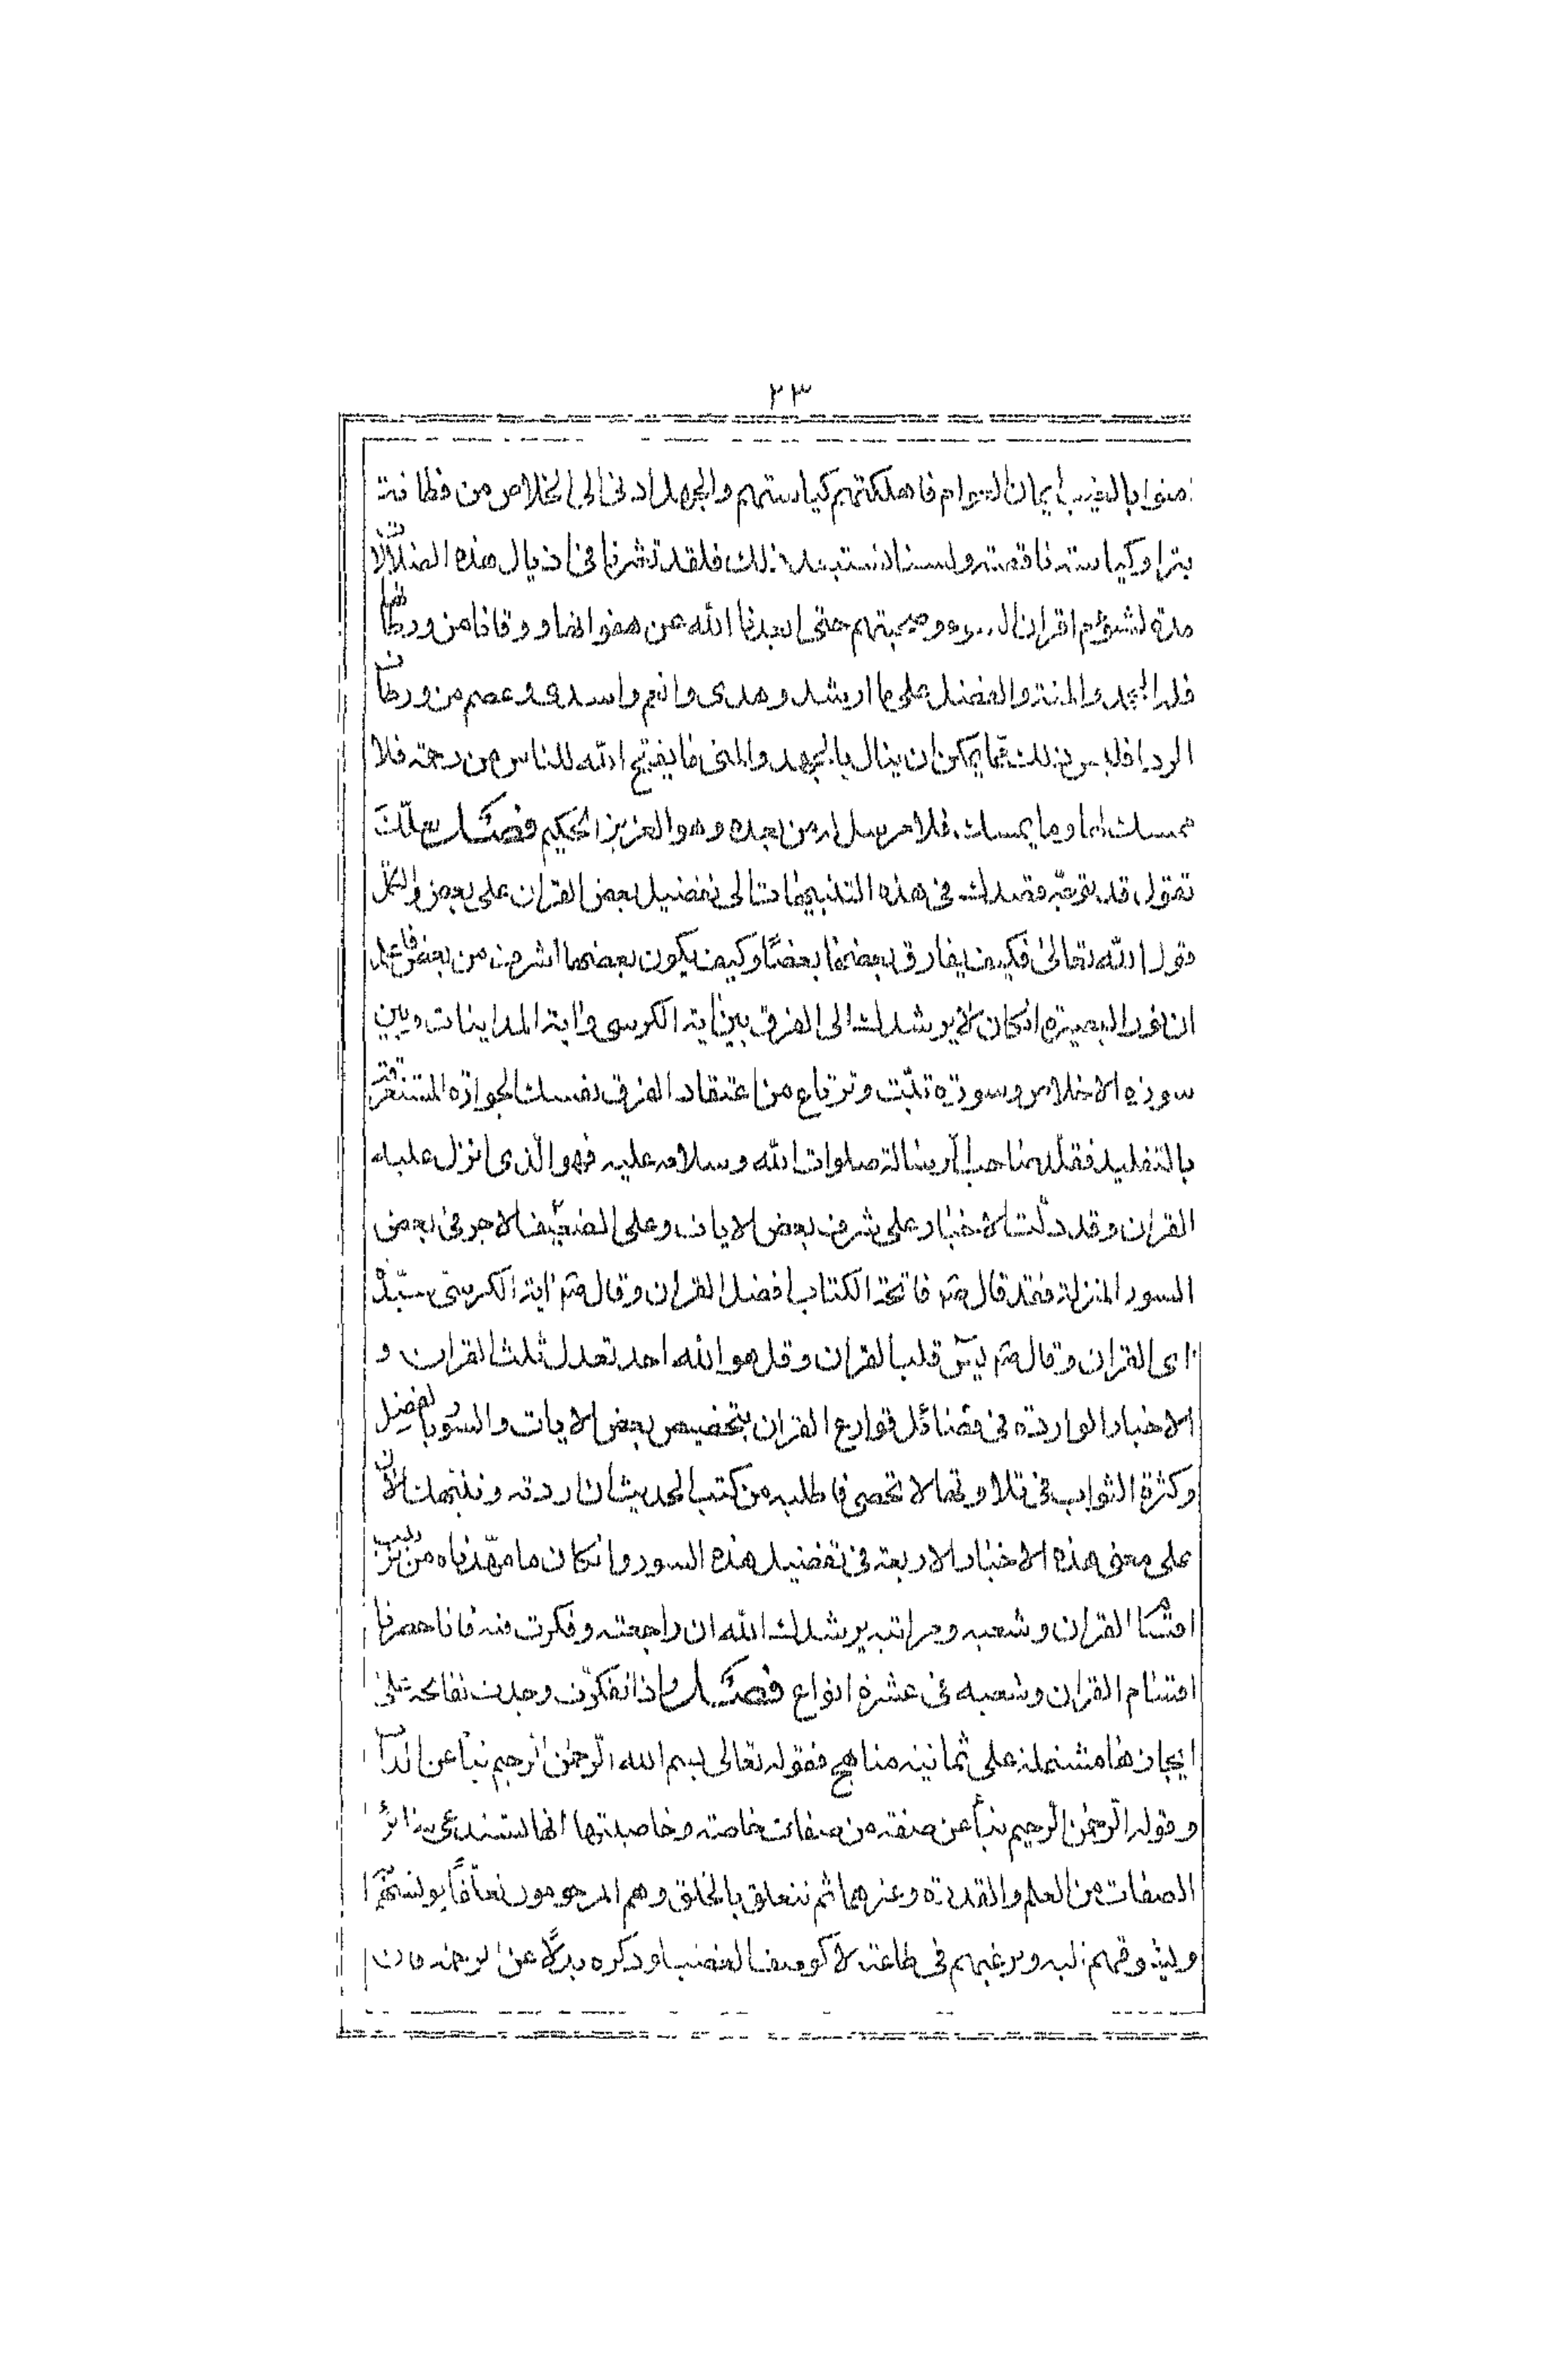 ٢٣
امنوا بالغيب ايمان العوام فاهلكتهم كياستهم والجهل ادنى الى الخلاص من فطانة
بترا وكياسته ناقصة ولسنا نستبعد ذلك فلقد تشرنا في اذيال هذه الضلالات
مدة لشؤم اقران السوء وصحبتهم حتى ابعدنا الله عن هفواتها ووقانا من ورطاتها
فله الحمد والمنة والفضل على ما ارشد وهدى وانعم واسدى وعصم من ورطات
الردا فليس ذلك مما يمكن ان ينال بالجهد والمنى ما يفتح الله للناس من رحمة فلا
ممسك لها وما يمسك فلا مرسل له من بعده وهو العزيز الحكيم فصل لعلك
تقول قد توجه قصدك في هذه التنبيهات الى تفضيل بعض القران على بعض والكل
قول الله تعالى فكيف يفارق بعضها بعضا وكيف يكون بعضها اشرف من بعض فاعلم
ان نور البصيرة ان كان لا يرشدك الى الفرق بين اية الكرسى واية المداينات وبين
سورة الاخلاص وسورة تبت وترتاع من اعتقاد الفرق نفسك الجوارة المستغرقة
بالتقليد فقلد صاحب الرسالة صلوات الله وسلامه عليه فهو الذى انزل عليه
القران وقد دلت الاخبار على شرف بعض الايات وعلى تضعيف الاجر في بعض
السور المنزلة فقد قال ص فاتحة الكتاب افضل القران وقال ص اية الكرسى سيدة
اى القران وقال ص يس قلب القران وقل هو الله احد تعدل ثلث القران و
الاخبار الواردة في فضائل قوارع القران بتخصيص بعض الايات والسور بالفضل
وكثرة الثواب في تلاوتها لا تحصى فاطلبه من كتب الحديث ان اردته وننبهك الان
على معنى هذه الاخبار الاربعة في تفضيل هذه السور وان كان ما مهدناه من ترتيب
اقسام القران وشعبه ومراتبه يرشدك الله ان راجعته وفكرت فيه فانا حصرنا
اقسام القران وشعبه في عشرة انواع فصل واذا تفكرت وجدت الفاتحة على
ايجازها مشتملة على ثمانية مناهج فقوله تعالى بسم الله الرحمن الرحيم نبأ عن الذات
وقوله الرحمن الرحيم نبأ عن صفة من صفات خاصة وخاصيتها انها تستدعى سائر
الصفات من العلم والقدرة وغيرهما ثم تتعلق بالخلق وهم المرحومون تعلقا يونسهم
ويشوقهم اليه ويرغبهم في طاعته لا كوصف الغضب لو ذكره بدلا عن الرحمة فان